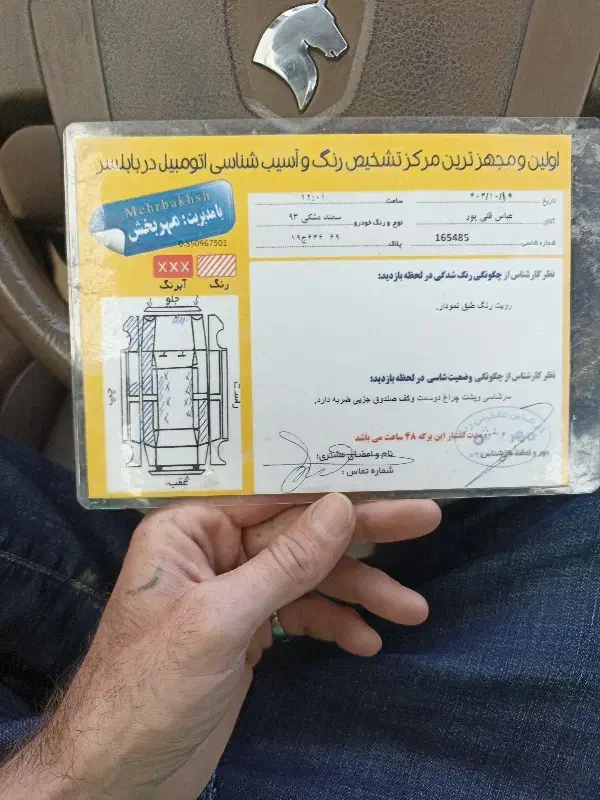 اولین و مجهزترین مرکز تشخیص رنگ و آسیب شناسی اتومبیل در بابلسر
Mehrbakhsh
با مدیریت: مهربخش
تاریخ
ساعت ۱۲:۰۱
آقای عباس قلی پور
نوع و رنگ خودرو سمند مشکی ۹۳
شماره شاسی 165485
پلاک
xxx
آبرنگ رنگ
جلو
چپ
راست
عقب
نظر کارشناس از چگونگی رنگ شدگی در لحظه بازدید:
رویت رنگ طبق نمودار.
نظر کارشناس از چگونگی وضعیت شاسی در لحظه بازدید:
سرشاسی وپشت چراغ دوسمت وکف صندوق جزیی ضربه دارد.
مدت اعتبار این برگه ۴۸ ساعت می باشد
نام و امضاء مشتری:
شماره تماس:
مهر و امضاء کارشناس